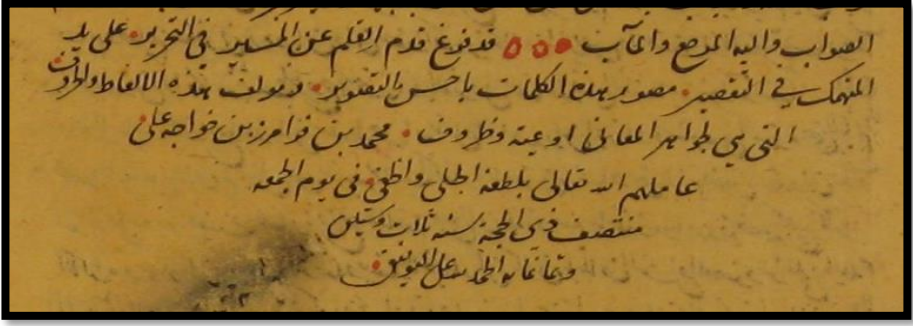 الصواب واليه المرجع والمآب ٥٥٥ قد فرغ قدم القلم عن المسير في التحرير على يد
المنهمك في التقصير مصور هذه الكلمات باحسن التصوير ومولف هذه الالفاظ والحروف
التي هي لجواهر المعاني اوعية وظروف محمد بن فرامرز بن خواجه علي
عاملهم الله تعالى بلطفه الجلي والخفي في يوم الجمعة
منتصف ذي الحجة سنة ثلاث وستين
وثمانمائة الحمد لله على التوفيق